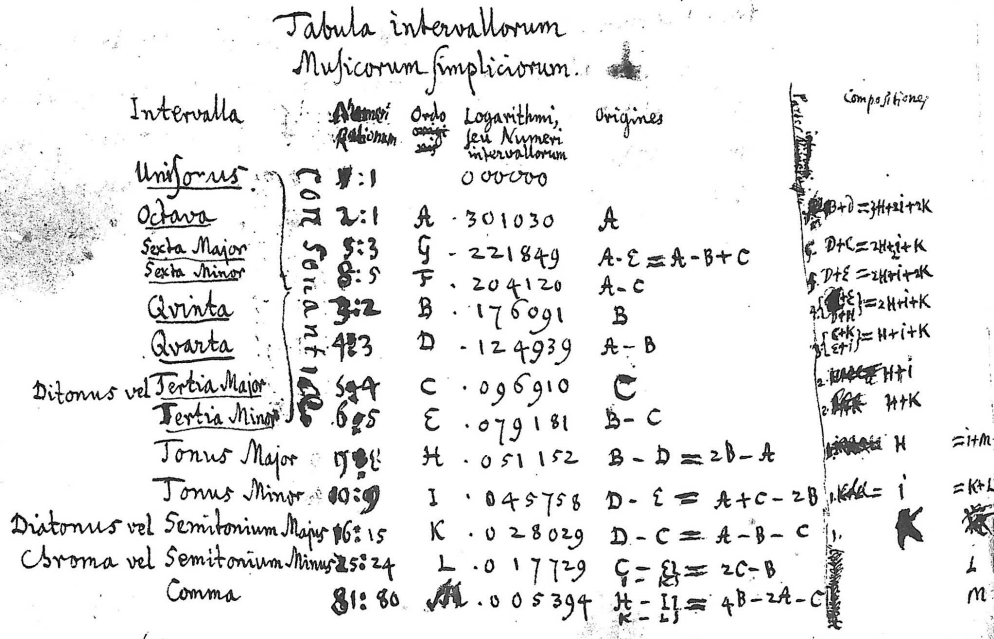 Tabula intervallorum
Musicorum simpliciorum.
Intervalla Numeri Rationum Ordo Logarithmi, seu Numeri intervallorum Origines Compositiones
Consonantiæ
Unisonus. 1:1 000000
Octava 2:1 A .301030 A B+D=3H+2i+2K
Sexta Major 5:3 G .221849 A-E=A-B+C D+C=2H+2i+K
Sexta Minor 8:5 F .204120 A-C D+E=2H+i+2K
Qvinta 3:2 B .176091 B =2H+i+K
Qvarta 4:3 D .124939 A-B =H+i+K
Ditonus vel Tertia Major 5:4 C .096910 C H+i
Tertia Minor 6:5 E .079181 B-C H+K
Tonus Major 9:8 H .051152 B-D=2B-A H =i+M
Tonus Minor 10:9 I .045758 D-E=A+C-2B i =K+L
Diatonus vel Semitonium Majus 16:15 K .028029 D-C=A-B-C K
Chroma vel Semitonium Minus 25:24 L .017729 C-E=2C-B L
Comma 81:80 M .005394 H-I=4B-2A-C M
K-L